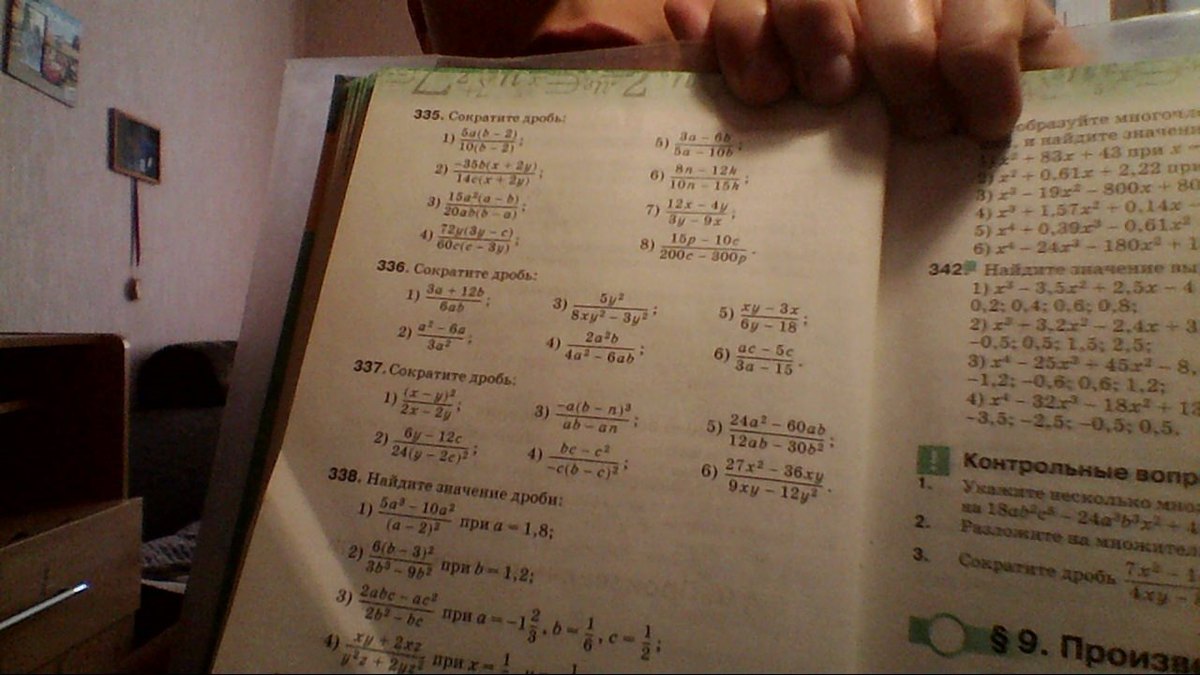 335. Сократите дробь:
1) 5a(b − 2)/10(b − 2);
2) −35b(x + 2y)/14c(x + 2y);
3) 15a²(a − b)/20ab(b − a);
4) 72y(3y − c)/60c(c − 3y);
5) 3a − 6b/5a − 10b;
6) 8n − 12k/10n − 15k;
7) 12x − 4y/3y − 9x;
8) 15p − 10c/200c − 300p.
336. Сократите дробь:
1) 3a + 12b/6ab;
2) a² − 6a/3a²;
3) 5y²/8xy² − 3y²;
4) 2a²b/4a² − 6ab;
5) xy − 3x/6y − 18;
6) ac − 5c/3a − 15.
337. Сократите дробь:
1) (x − y)²/2x − 2y;
2) 6y − 12c/24(y − 2c)²;
3) −a(b − n)³/ab − an;
4) bc − c²/−c(b − c)²;
5) 24a² − 60ab/12ab − 30b²;
6) 27x² − 36xy/9xy − 12y².
338. Найдите значение дроби:
1) 5a³ − 10a²/(a − 2)² при a = 1,8;
2) 6(b − 3)²/3b³ − 9b² при b = 1,2;
3) 2abc − ac²/2b² − bc при a = −1 2/3, b = 1/6, c = 1/2;
4) xy + 2xz/y²z + 2yz² при x =
и найдите значени
x² + 83x + 43 при x
x² + 0,61x + 2,22 при
3) x³ − 19x² − 800x + 80
4) x³ + 1,57x² + 0,14x −
5) x⁴ + 0,39x³ − 0,61x²
6) x⁴ − 24x³ − 180x² + 1
342. Найдите значение вы
1) x³ − 3,5x² + 2,5x − 4
0,2; 0,4; 0,6; 0,8;
2) x³ − 3,2x² − 2,4x + 3
−0,5; 0,5; 1,5; 2,5;
3) x⁴ − 25x³ + 45x² − 8,
−1,2; −0,6; 0,6; 1,2;
4) x⁴ − 32x³ − 18x² + 13
−3,5; −2,5; −0,5; 0,5.
Контрольные вопр
1. Укажите несколько мно
на 18ab²c⁸ − 24a³b³x² + 4
2. Разложите на множител
3. Сократите дробь 7x² − 1/4xy −
§ 9. Произве